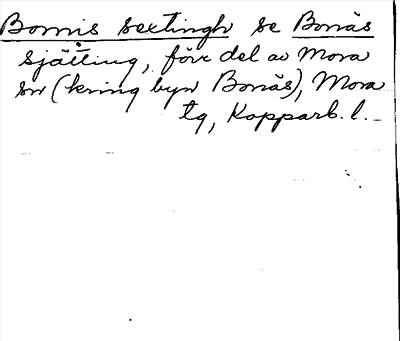 Bornis sextingh se Bonäs
sjätting, förr del av Mora
sn (kring byn Bonäs), Mora
tg, Kopparb. l.